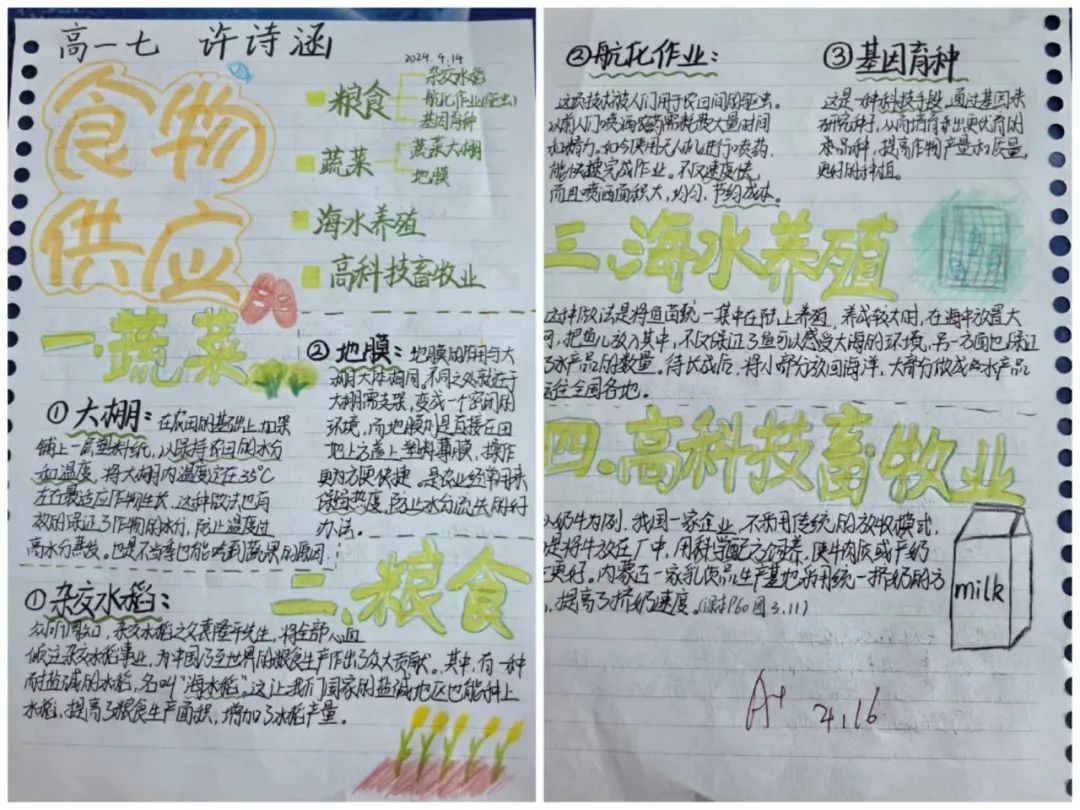 高一七 许诗涵
2024.9.14
食物
供应
粮食
杂交水稻
航化作业(驱虫)
基因育种
蔬菜
蔬菜大棚
地膜
海水养殖
高科技畜牧业
一.蔬菜
①大棚：在农田的基础上,加架
铺上一层塑料纸,以保持农田的水分
和温度,将大棚内温度定在35℃
左右最适应作物生长,这种做法也有
效的保证了作物的水分,防止温度过
高水分蒸发。也是不当季也能吃到蔬果的原因.
②地膜：地膜的作用与大
棚大体相同。不同之处就在于
大棚需支架,变成一个密闭的
环境,而地膜则是直接在田
地上方盖上塑料薄膜,操作
更为方便快捷。是农业经常用来
保绿热度,防止水分流失的好
办法。
二.粮食
①杂交水稻：
众所周知,杂交水稻之父袁隆平先生,将全部心血
倾注杂交水稻事业,为中国乃至世界的粮食生产作出了众大贡献。其中,有一种
耐盐碱的水稻,名叫“海水稻”。这让我们国家的盐碱地区也能种上
水稻,提高了粮食生产面积,增加了水稻产量。
②航化作业：
这项技术被人们用于农田间的驱虫。
以前人们喷洒农药需耗费大量时间
和精力。如今使用无人机进行喷药,
能快捷完成作业。不仅速度快,
而且喷洒面积大,均匀,节约成本。
③基因育种
这是一种科技手段,通过基因来
研究种子,从而培育出更优良的
品种,提高作物产量和质量,
更好的种植。
三.海水养殖
这种做法是将鱼苗统一集中在陆上养殖,养成较大时,在海中放置大
网,把鱼儿放入其中,不仅保证了鱼可以感受大海的环境,另一方面也保证
了水产品的数量。待长成后,将小部分放回海洋,大部分做成水产品
运往全国各地。
四.高科技畜牧业
以奶牛为例,我国一家企业,不采用传统的放牧模式,
是将牛放在厂中,用科学配方饲养,使牛肉质或产奶
更好。内蒙古一家乳饮品生产基地采用统一挤奶的方
,提高了挤奶速度。(课本P60图3.11)
milk
A+ 9.16